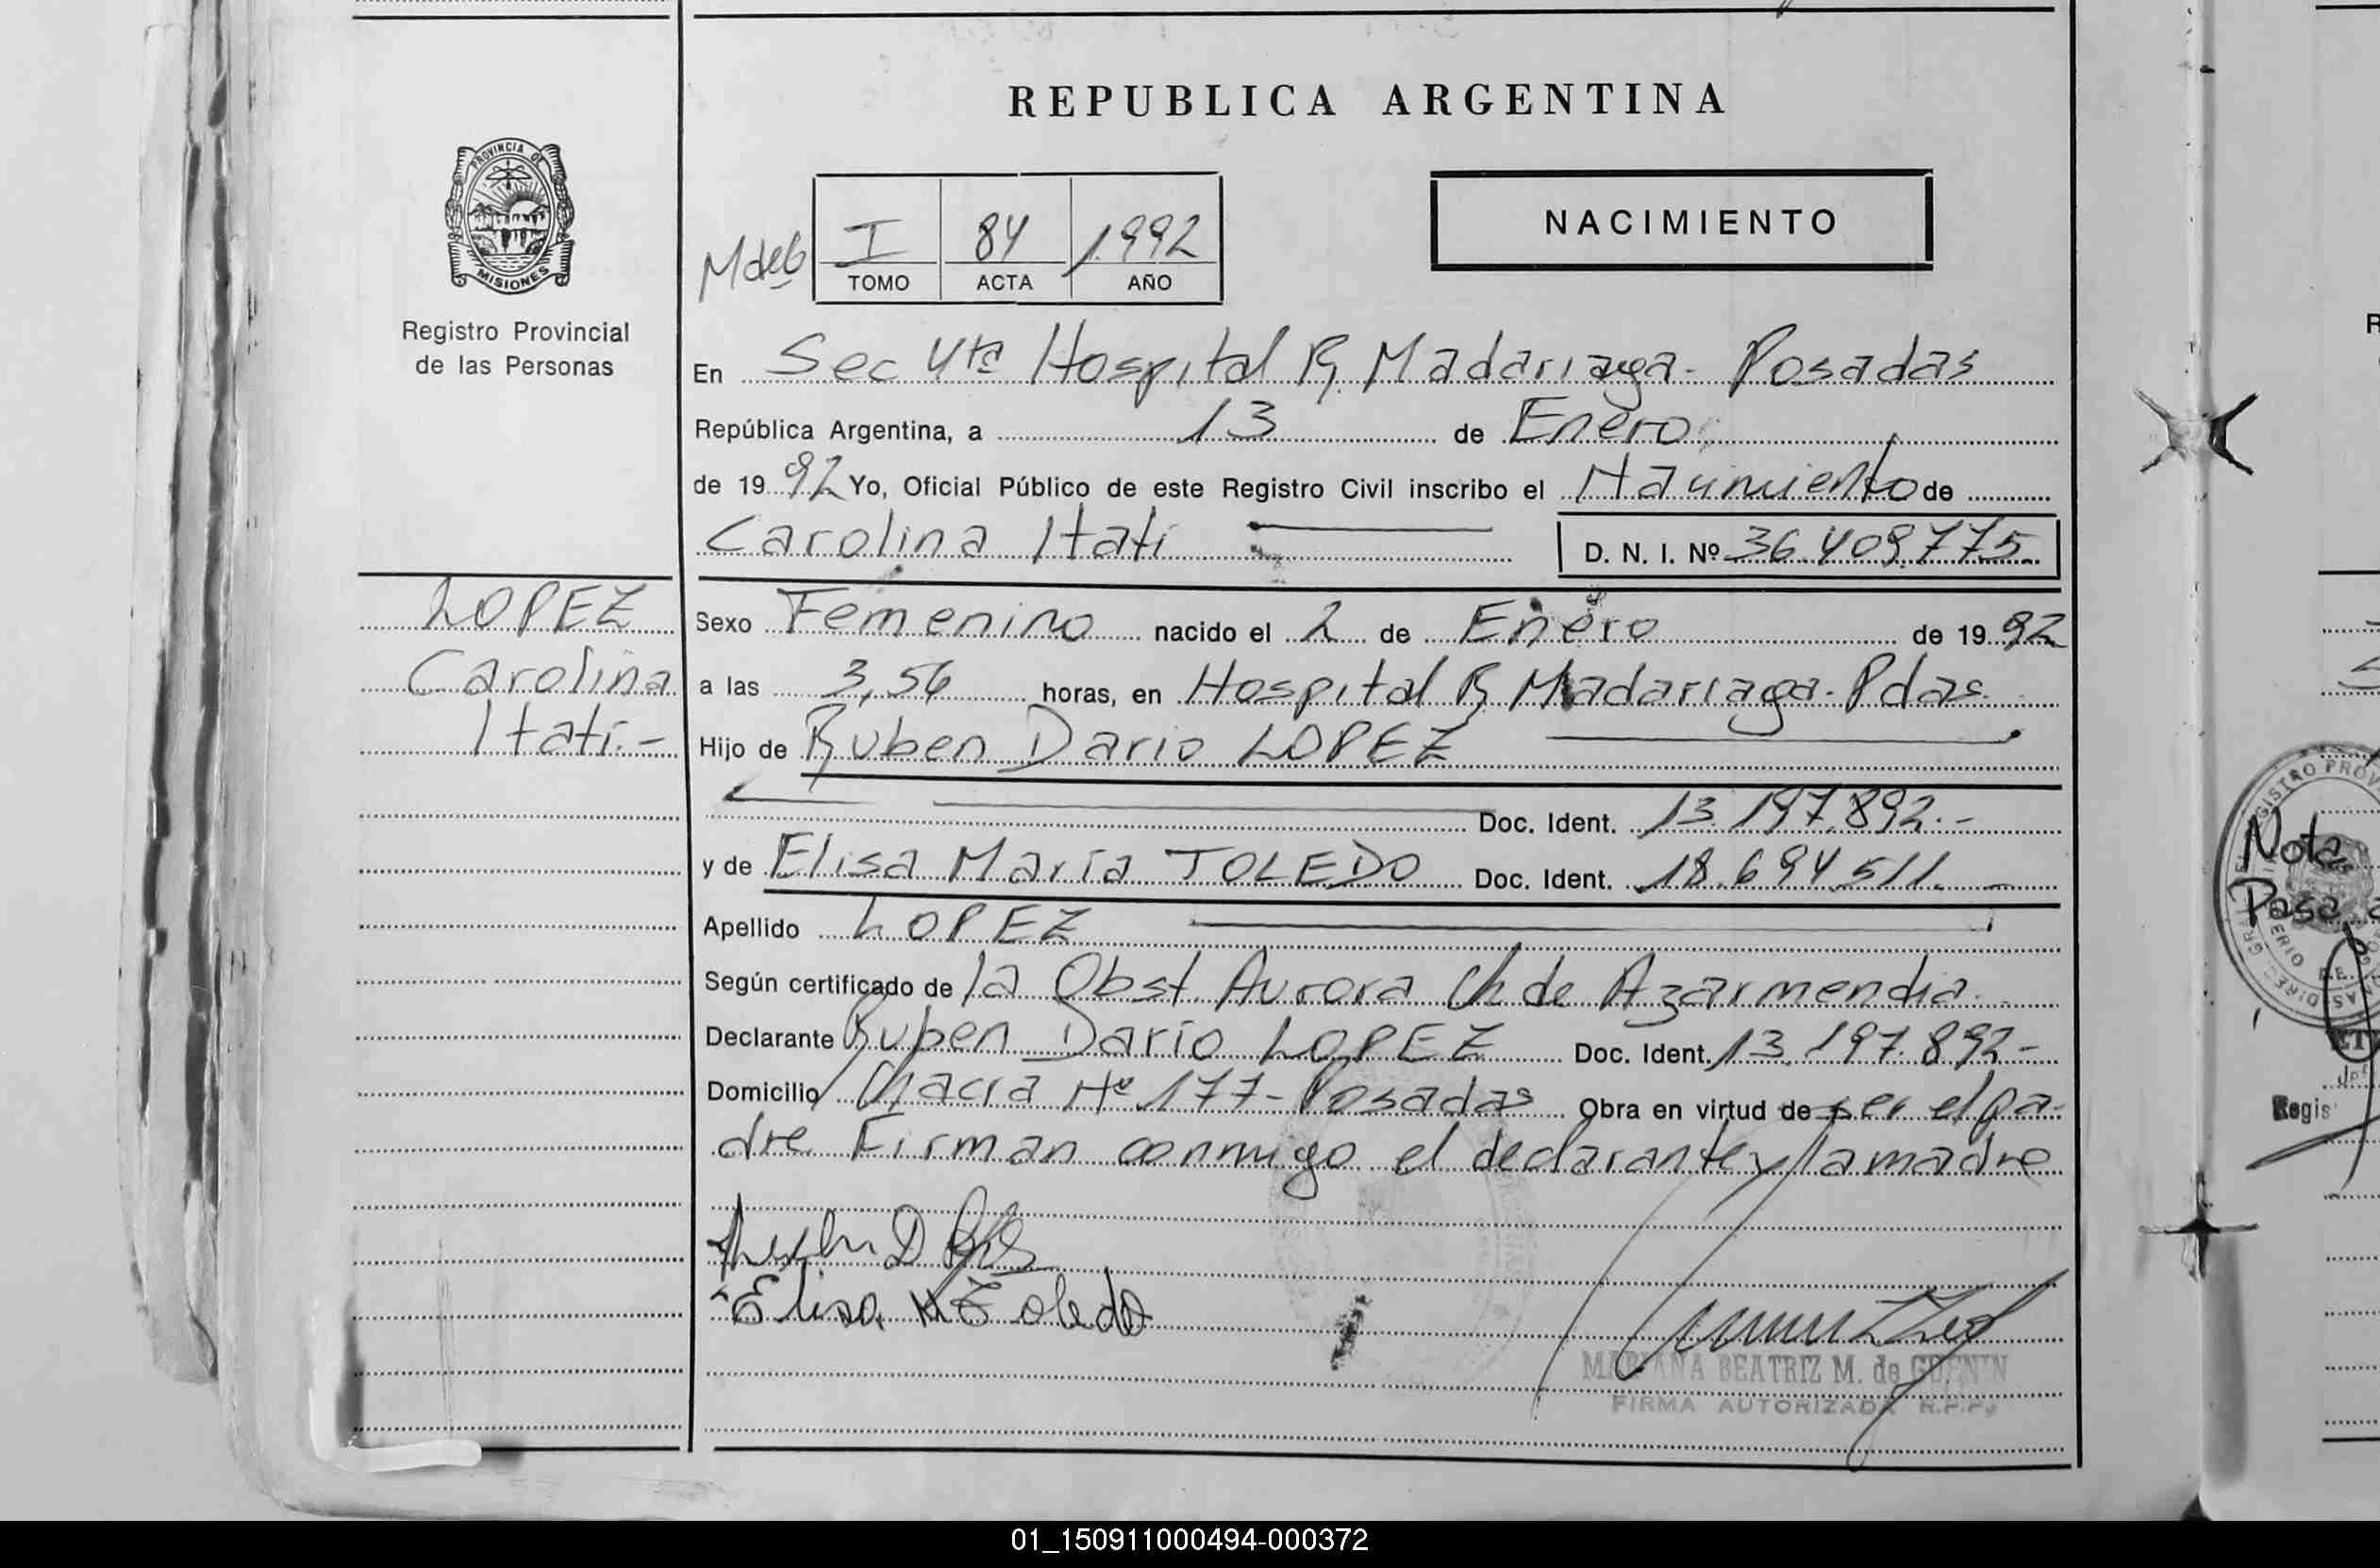 REPUBLICA ARGENTINA
PROVINCIA DE
MISIONES
Registro Provincial
de las Personas
I 84 1992
TOMO ACTA AÑO
NACIMIENTO
En Sec 4ta Hospital R. Madariaga - Posadas
República Argentina, a 13 de Enero
de 1992 Yo, Oficial Público de este Registro Civil inscribo el Nacimiento de
Carolina Itati D. N. I. Nº 36.409.775
LOPEZ
Carolina
Itati.-
Sexo Femenino nacido el 2 de Enero de 1992
a las 3,56 horas, en Hospital R. Madariaga - Pdas.
Hijo de Ruben Dario LOPEZ
Doc. Ident. 13.197.892.-
y de Elisa María TOLEDO Doc. Ident. 18.694511. -
Apellido LOPEZ
Según certificado de la Obst. Aurora Ch de Azarmendia
Declarante Ruben Dario LOPEZ Doc. Ident. 13.197.892-
Domicilio Chacra Nº 177 - Posadas Obra en virtud de ser el pa-
dre Firman conmigo el declarante y la madre
Elisa M Toledo
MARIANA BEATRIZ M. de GUENIN
FIRMA AUTORIZADA R.P.P.
Nota
Pasa a
Regis
01_150911000494-000372